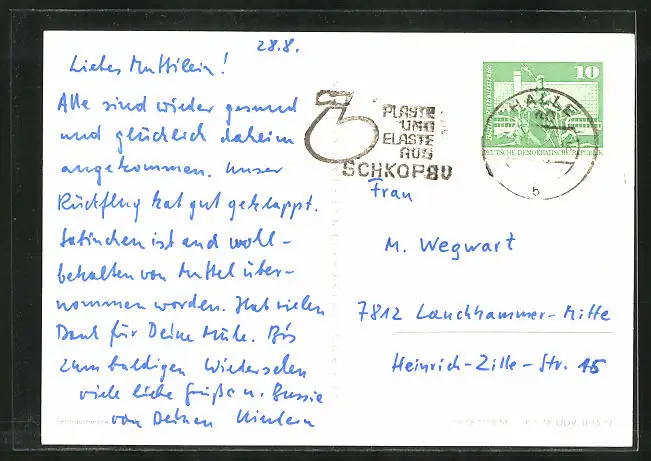 28.8.
Liebes Muttilein!
Alle sind wieder gesund
und glücklich daheim
angekommen. Unser
Rückflug hat gut geklappt.
ist auch wohl-
behalten von Muttel über-
nommen worden. Hab vielen
Dank für Deine Mühe. Bis
zum baldigen Wiedersehen
viele liebe Grüße u. Bussie
von Deinen Kindern
PLASTE
UND
ELASTE
AUS
SCHKOPAU
10
HALLE
DEUTSCHE DEMOKRATISCHE REPUBLIK
b
Frau
M. Wegwart
7812 Lauchhammer-Mitte
Heinrich-Zille-Str. 15